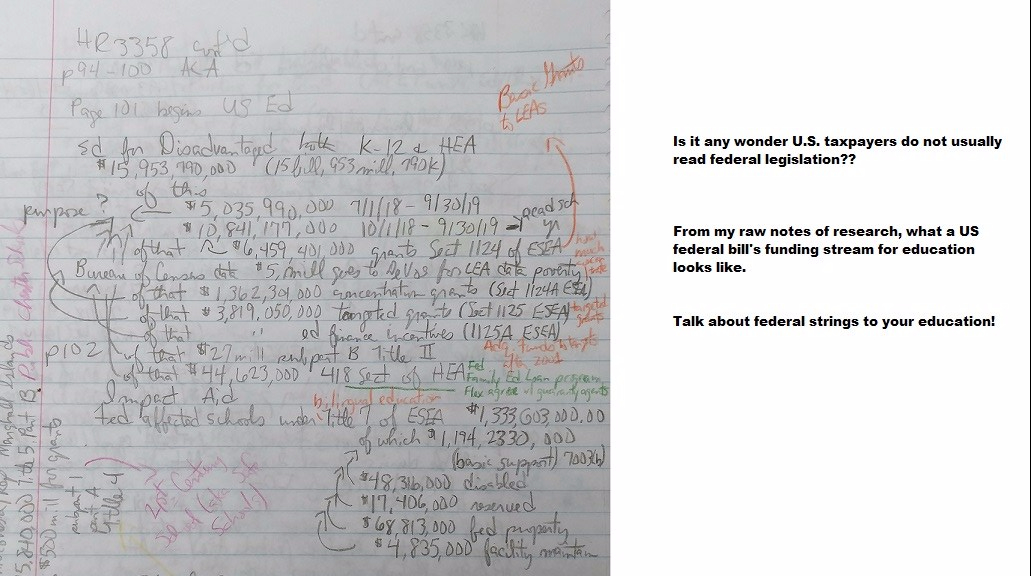 HR3358 cont'd
p94-100 ACA
Page 101 begins US Ed
Basic Grants
to LEAs
Ed for Disadvantaged both K-12 & HEA
$15,953,790,000 (15 bill, 953 mill, 790k)
of this
purpose ?
$5,035,990,000 7/1/18 - 9/30/19
$10,841,177,000 10/1/18 - 9/30/19 → acad sch
yr
of that $6,459,401,000 grants Sect 1124 of ESEA
Bureau of Census data $5 mill goes to DeVos for LEA data poverty
of that $1,362,301,000 concentration grants (Sect 1124A ESEA)
of that $3,819,050,000 targeted grants (Sect 1125 ESEA)
targeted
grants
of that " " ed finance incentives (1125A ESEA)
p102
of that $27 mill subpart B Title II
of that $44,623,000 418 sect of HEA
Fed
Family Ed Loan program
Flex agree w/ guaranty agents
Impact Aid
bilingual education
Fed affected schools under Title 7 of ESEA $1,333,603,000.00
of which $1,194,2330,000
(basic support) 7003(b)
$48,316,000 disabled
$17,406,000 reserved
$68,813,000 fed property
$4,835,000 facility maintain
subpart 1
part A
title 4
21st Century
Schools)
Marshall Islands
5,840,000 7 to 5 Part B
$500 mill for grants
Is it any wonder U.S. taxpayers do not usually
read federal legislation??
From my raw notes of research, what a US
federal bill's funding stream for education
looks like.
Talk about federal strings to your education!